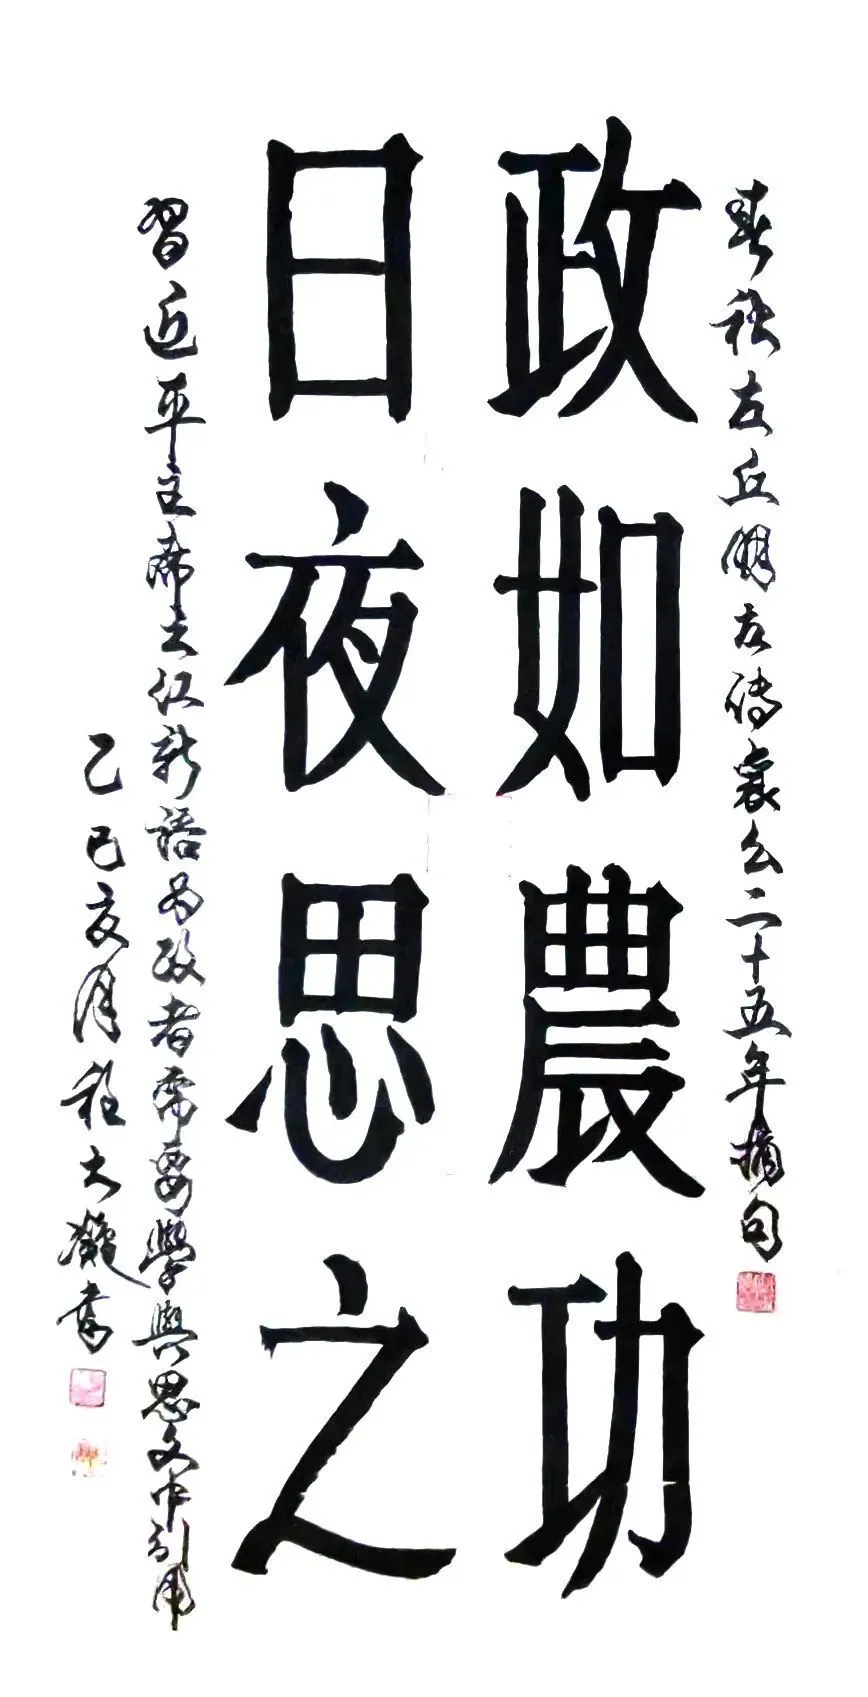 春秋左丘明左傳襄公二十五年摘句
政如農功
日夜思之
習近平主席之江新語為政者需要學與思文中引用
乙巳亥月程大獻書